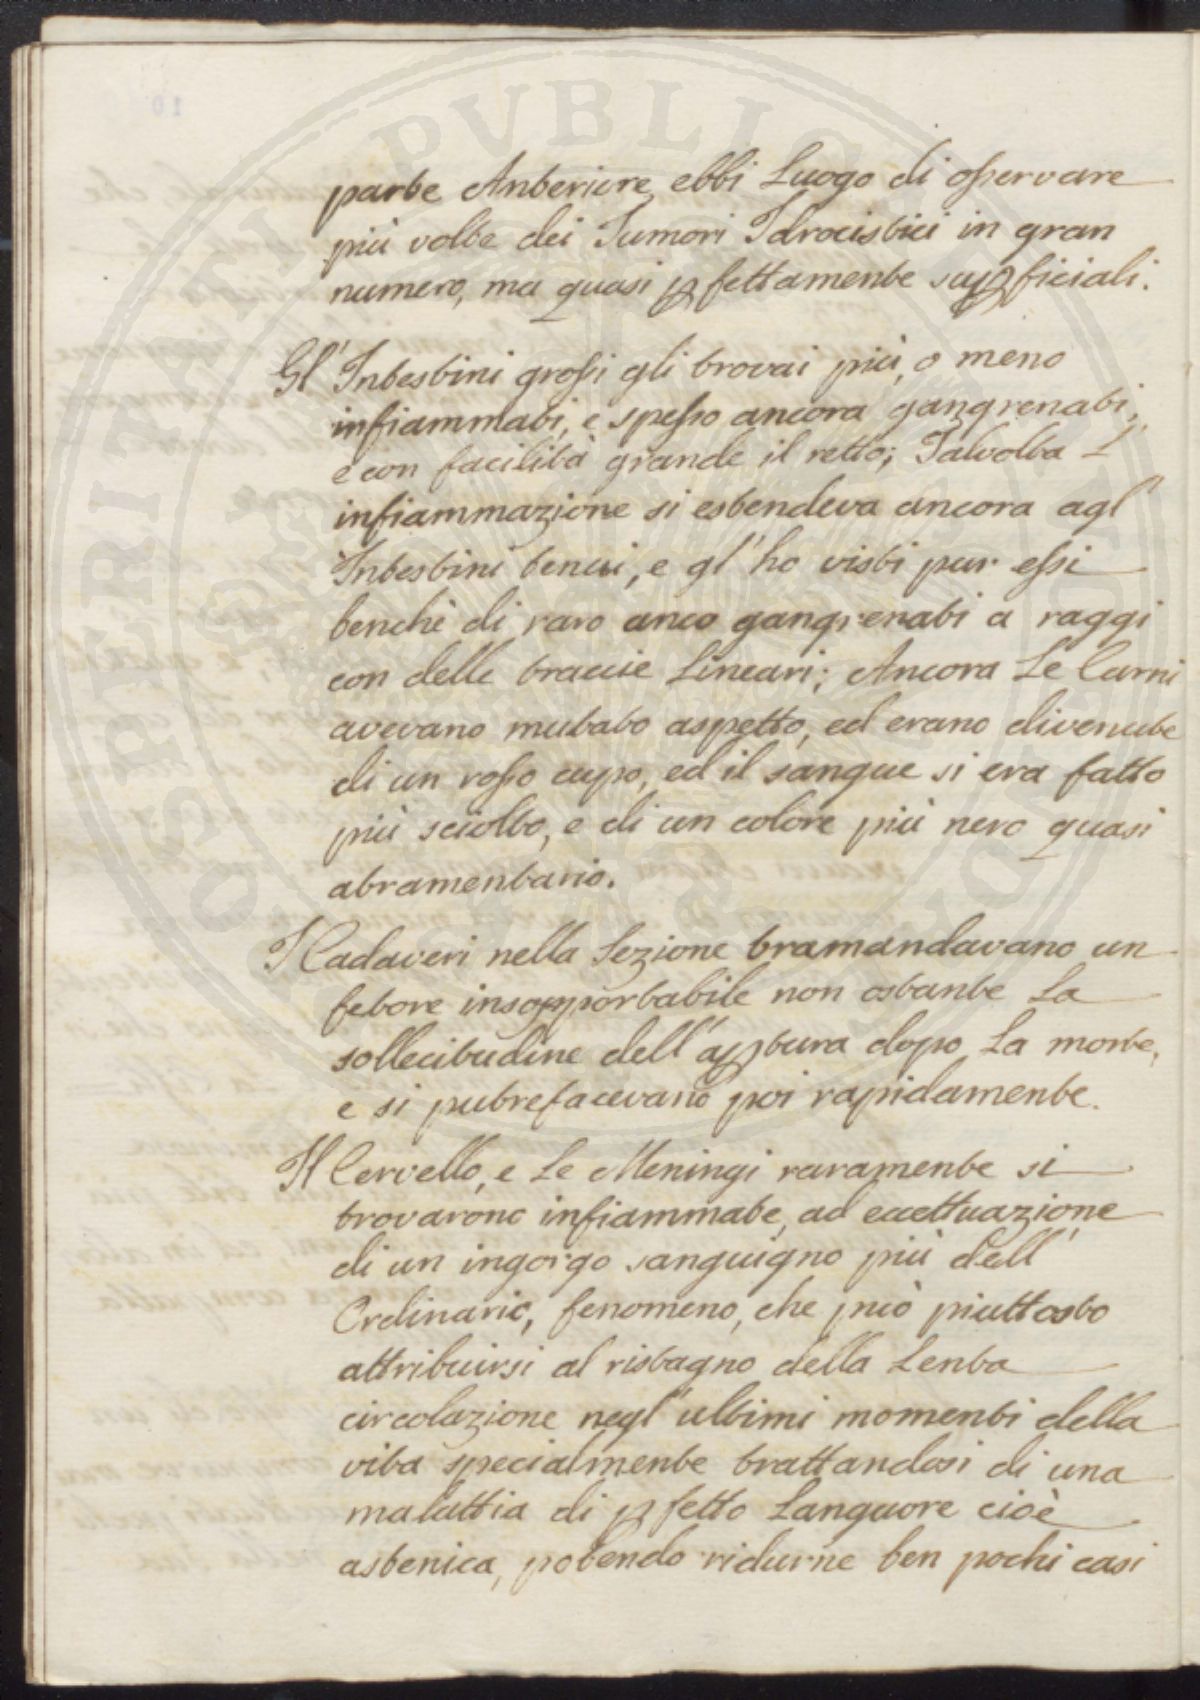 parte Anteriore ebbi Luogo di oſservare
più volte dei Tumori Idrocistici in gran
numero, ma quasi ꝑfettamente suꝑficiali.
Gl' Intestini groſsi gli trovai più, o meno
infiammati, e speſso ancora gangrenati,
e con facilità grande il retto; Talvolta L'
infiammazione si estendeva ancora agl'
Intestini tenui, e gl' ho visti pur eſsi
benchè di raro anco gangrenati a raggi
con delle traccie Lineari; Ancora Le Carni
avevano mutato aspetto, ed erano divenute
di un roſso cupo, ed il sangue si era fatto
più sciolto, e di un colore più nero quasi
atramentario.
I Cadaveri nella Sezione tramandavano un
fetore insopportabile non ostante La
sollecitudine dell' aꝑtura dopo La morte,
e si putrefacevano poi rapidamente.
Il Cervello, e Le Meningi raramente si
trovarono infiammate, ad eccettuazione
di un ingorgo sanguigno più dell'
Ordinario, fenomeno, che può piuttosto
attribuirsi al ristagno della Lenta
circolazione negl' ultimi momenti della
vita specialmente trattandosi di una
malattia di ꝑfetto Languore cioè
astenica, potendo ridurne ben pochi casi
PROSPERITATI PUBLICAE